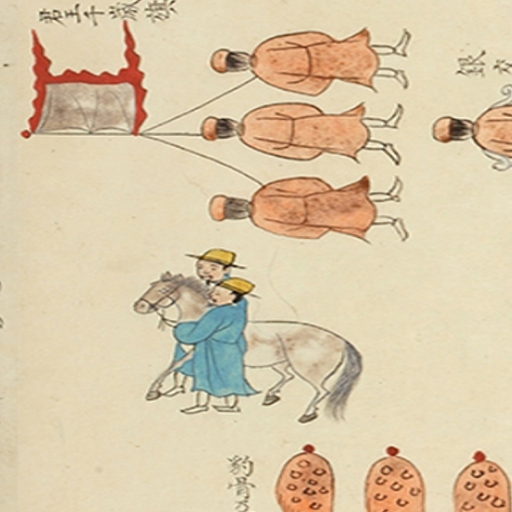 君王千歲旗
銀交
豹骨